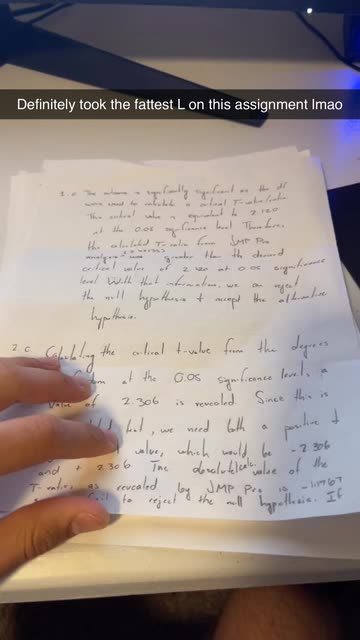 Definitely took the fattest L on this assignment lmao
The outcome is significantly significant as the df
were used to calculate a critical T-value
This critical value is equivalent to 2.120
at the 0.05 significance level. Therefore,
the calculated T-value from JMP Pro
analysis greater than the
critical value of 2.120 at 0.05 significance
level. With that information, we can reject
the null hypothesis + accept the alternative
hypothesis.
2.c. Calculating the critical t-value from the degrees
at the 0.05 significance level, a
value of 2.306 is revealed. Since this is
, we need both a positive +
value, which would be -2.306
and + 2.306 The absolute calc. value of the
T-value as revealed by JMP Pro is
to reject the null hypothesis. If